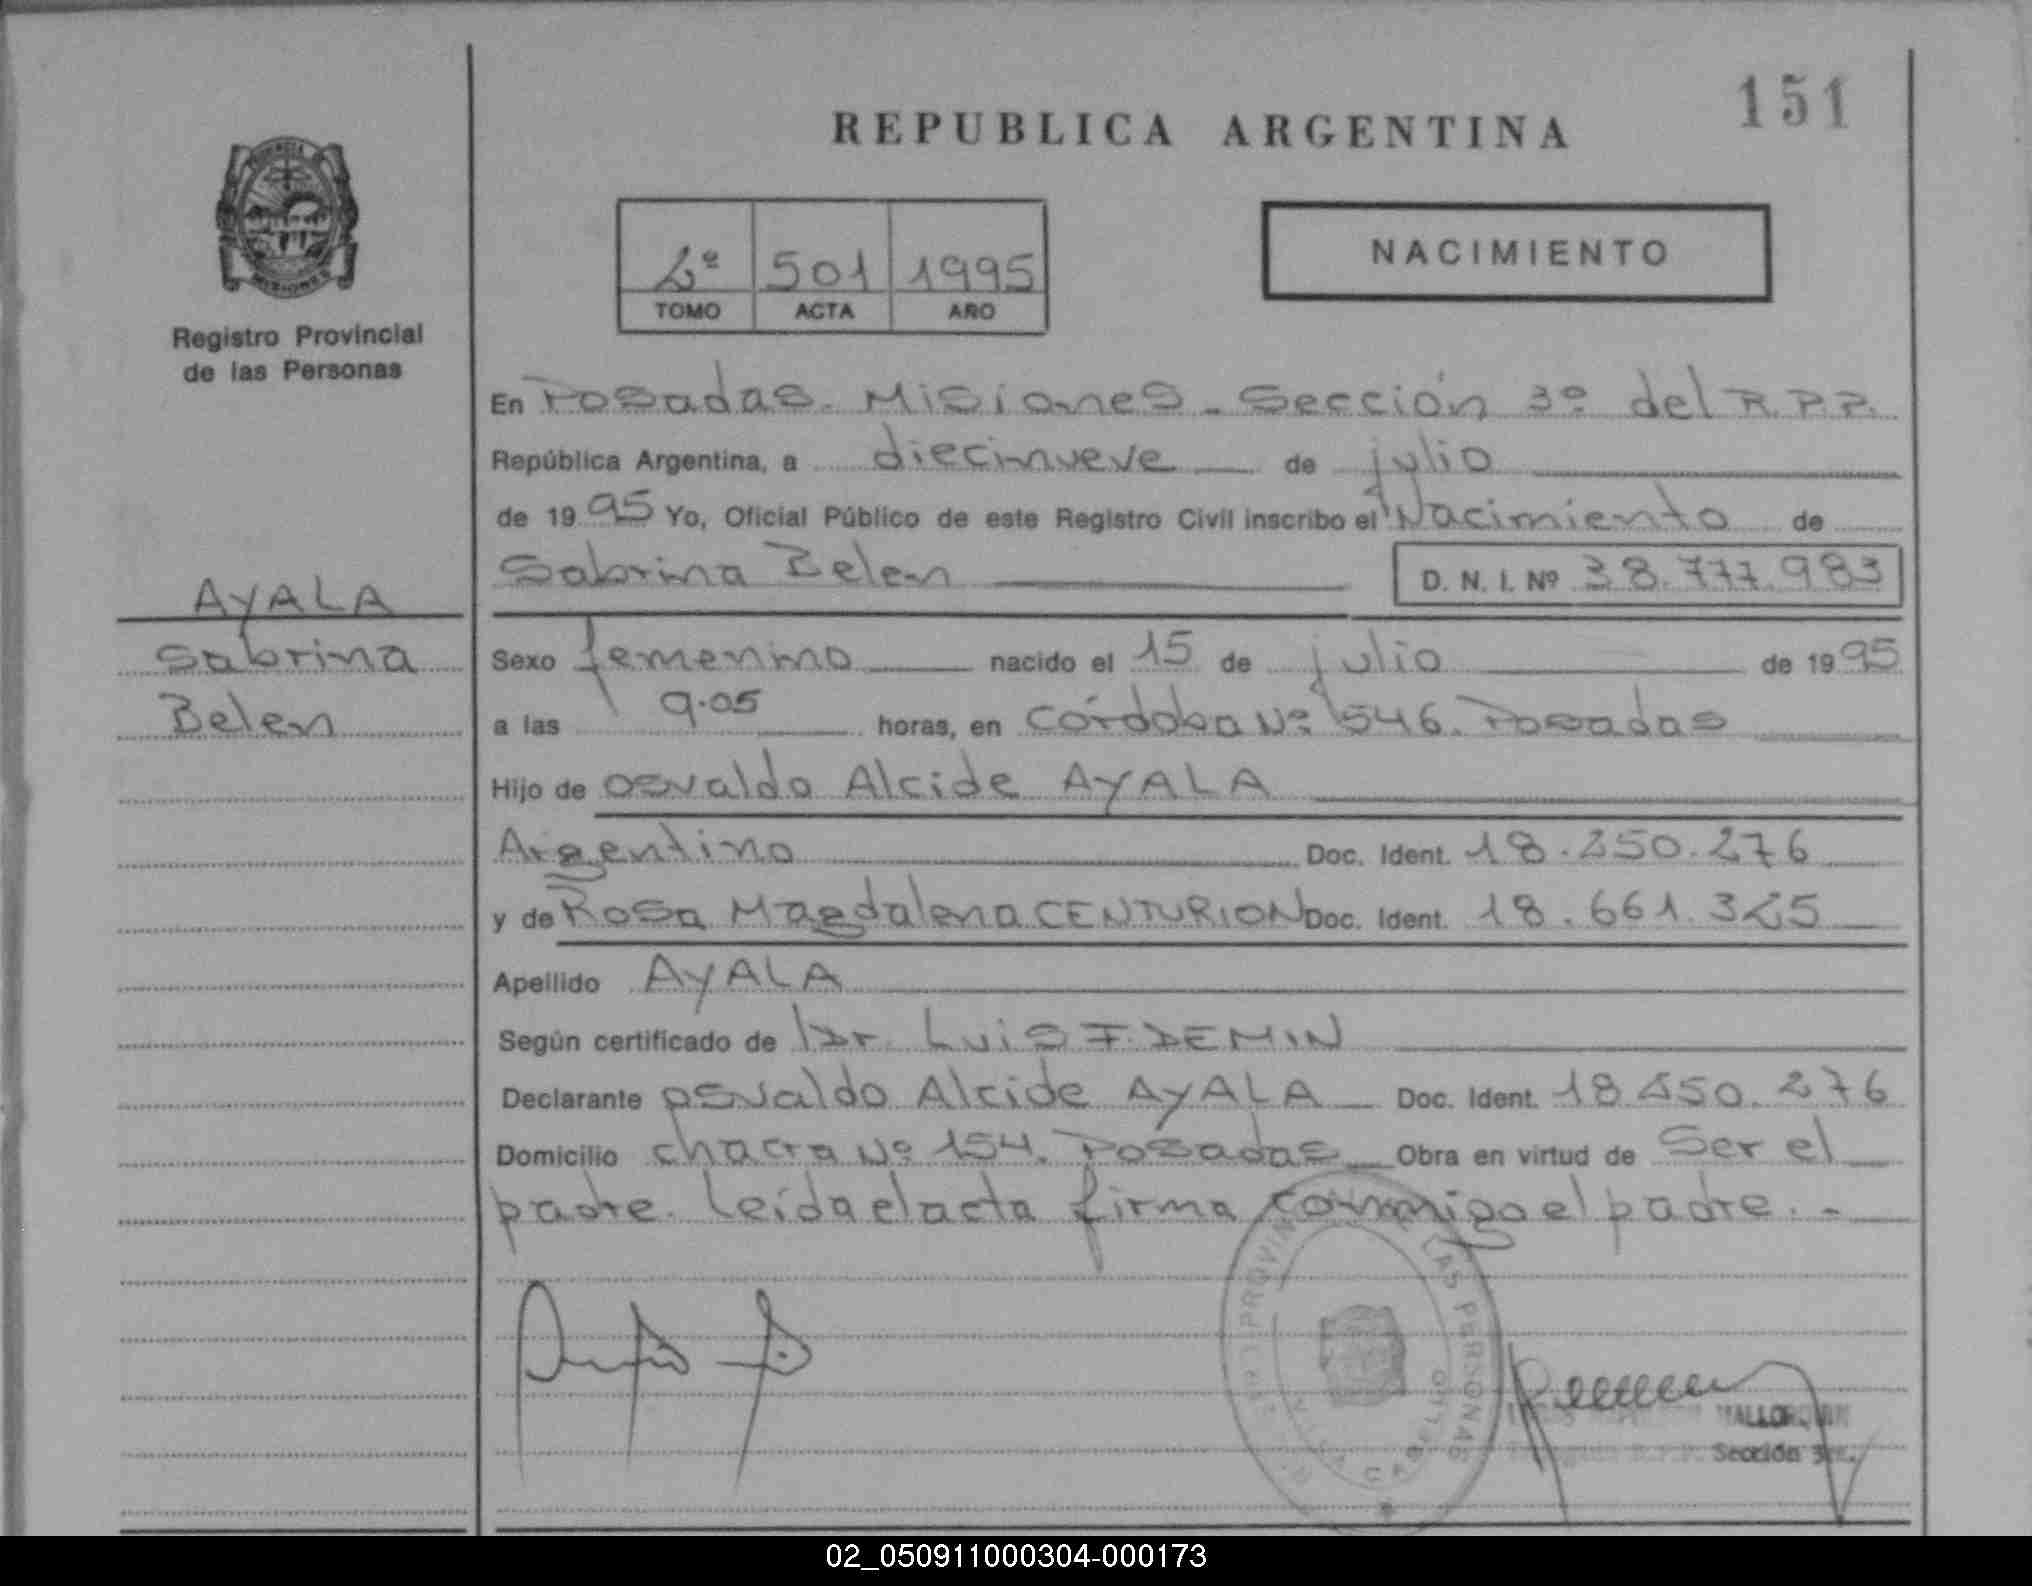 151
REPUBLICA ARGENTINA
2º 501 1995
TOMO ACTA AÑO
NACIMIENTO
Registro Provincial
de las Personas
En Posadas. Misiones. Sección 3º del R.P.P.
República Argentina, a diecinueve de julio
de 1995 Yo, Oficial Público de este Registro Civil inscribo el Nacimiento de
Sabrina Belen D. N. I. Nº 38.777.983
AYALA
Sabrina
Belen
Sexo femenino nacido el 15 de julio de 1995
a las 9.05 horas, en Córdoba Nº 546. Posadas
Hijo de Osvaldo Alcide AYALA
Argentino Doc. Ident. 18.250.276
y de Rosa Magdalena CENTURION Doc. Ident. 18.661.325
Apellido AYALA
Según certificado de Dr. Luis F. DEMIN
Declarante Osvaldo Alcide AYALA Doc. Ident. 18 250.276
Domicilio chacra Nº 154. Posadas Obra en virtud de Ser el
padre. leída el acta firma conmigo el padre.-
LAS PERSONAS
VILLA CABELLO
MALLORQUIN
Sección 3ra.
02_050911000304-000173